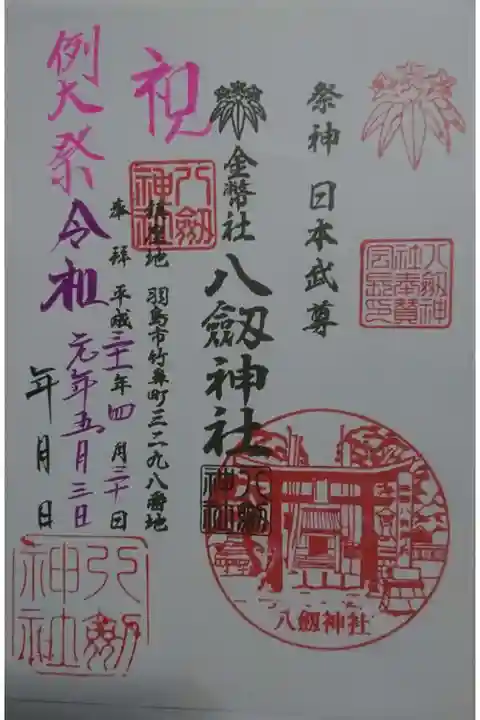 祭神 日本武尊
八劔神社奉賛会長印
金幣社 八劔神社
八劔神社
八劔神社
祝
八劔神社
鎮座地 羽島市竹鼻町三二九八番地
奉拝 平成三十一年四月三十日
例大祭 令和元年五月三日
年月日
八劔神社